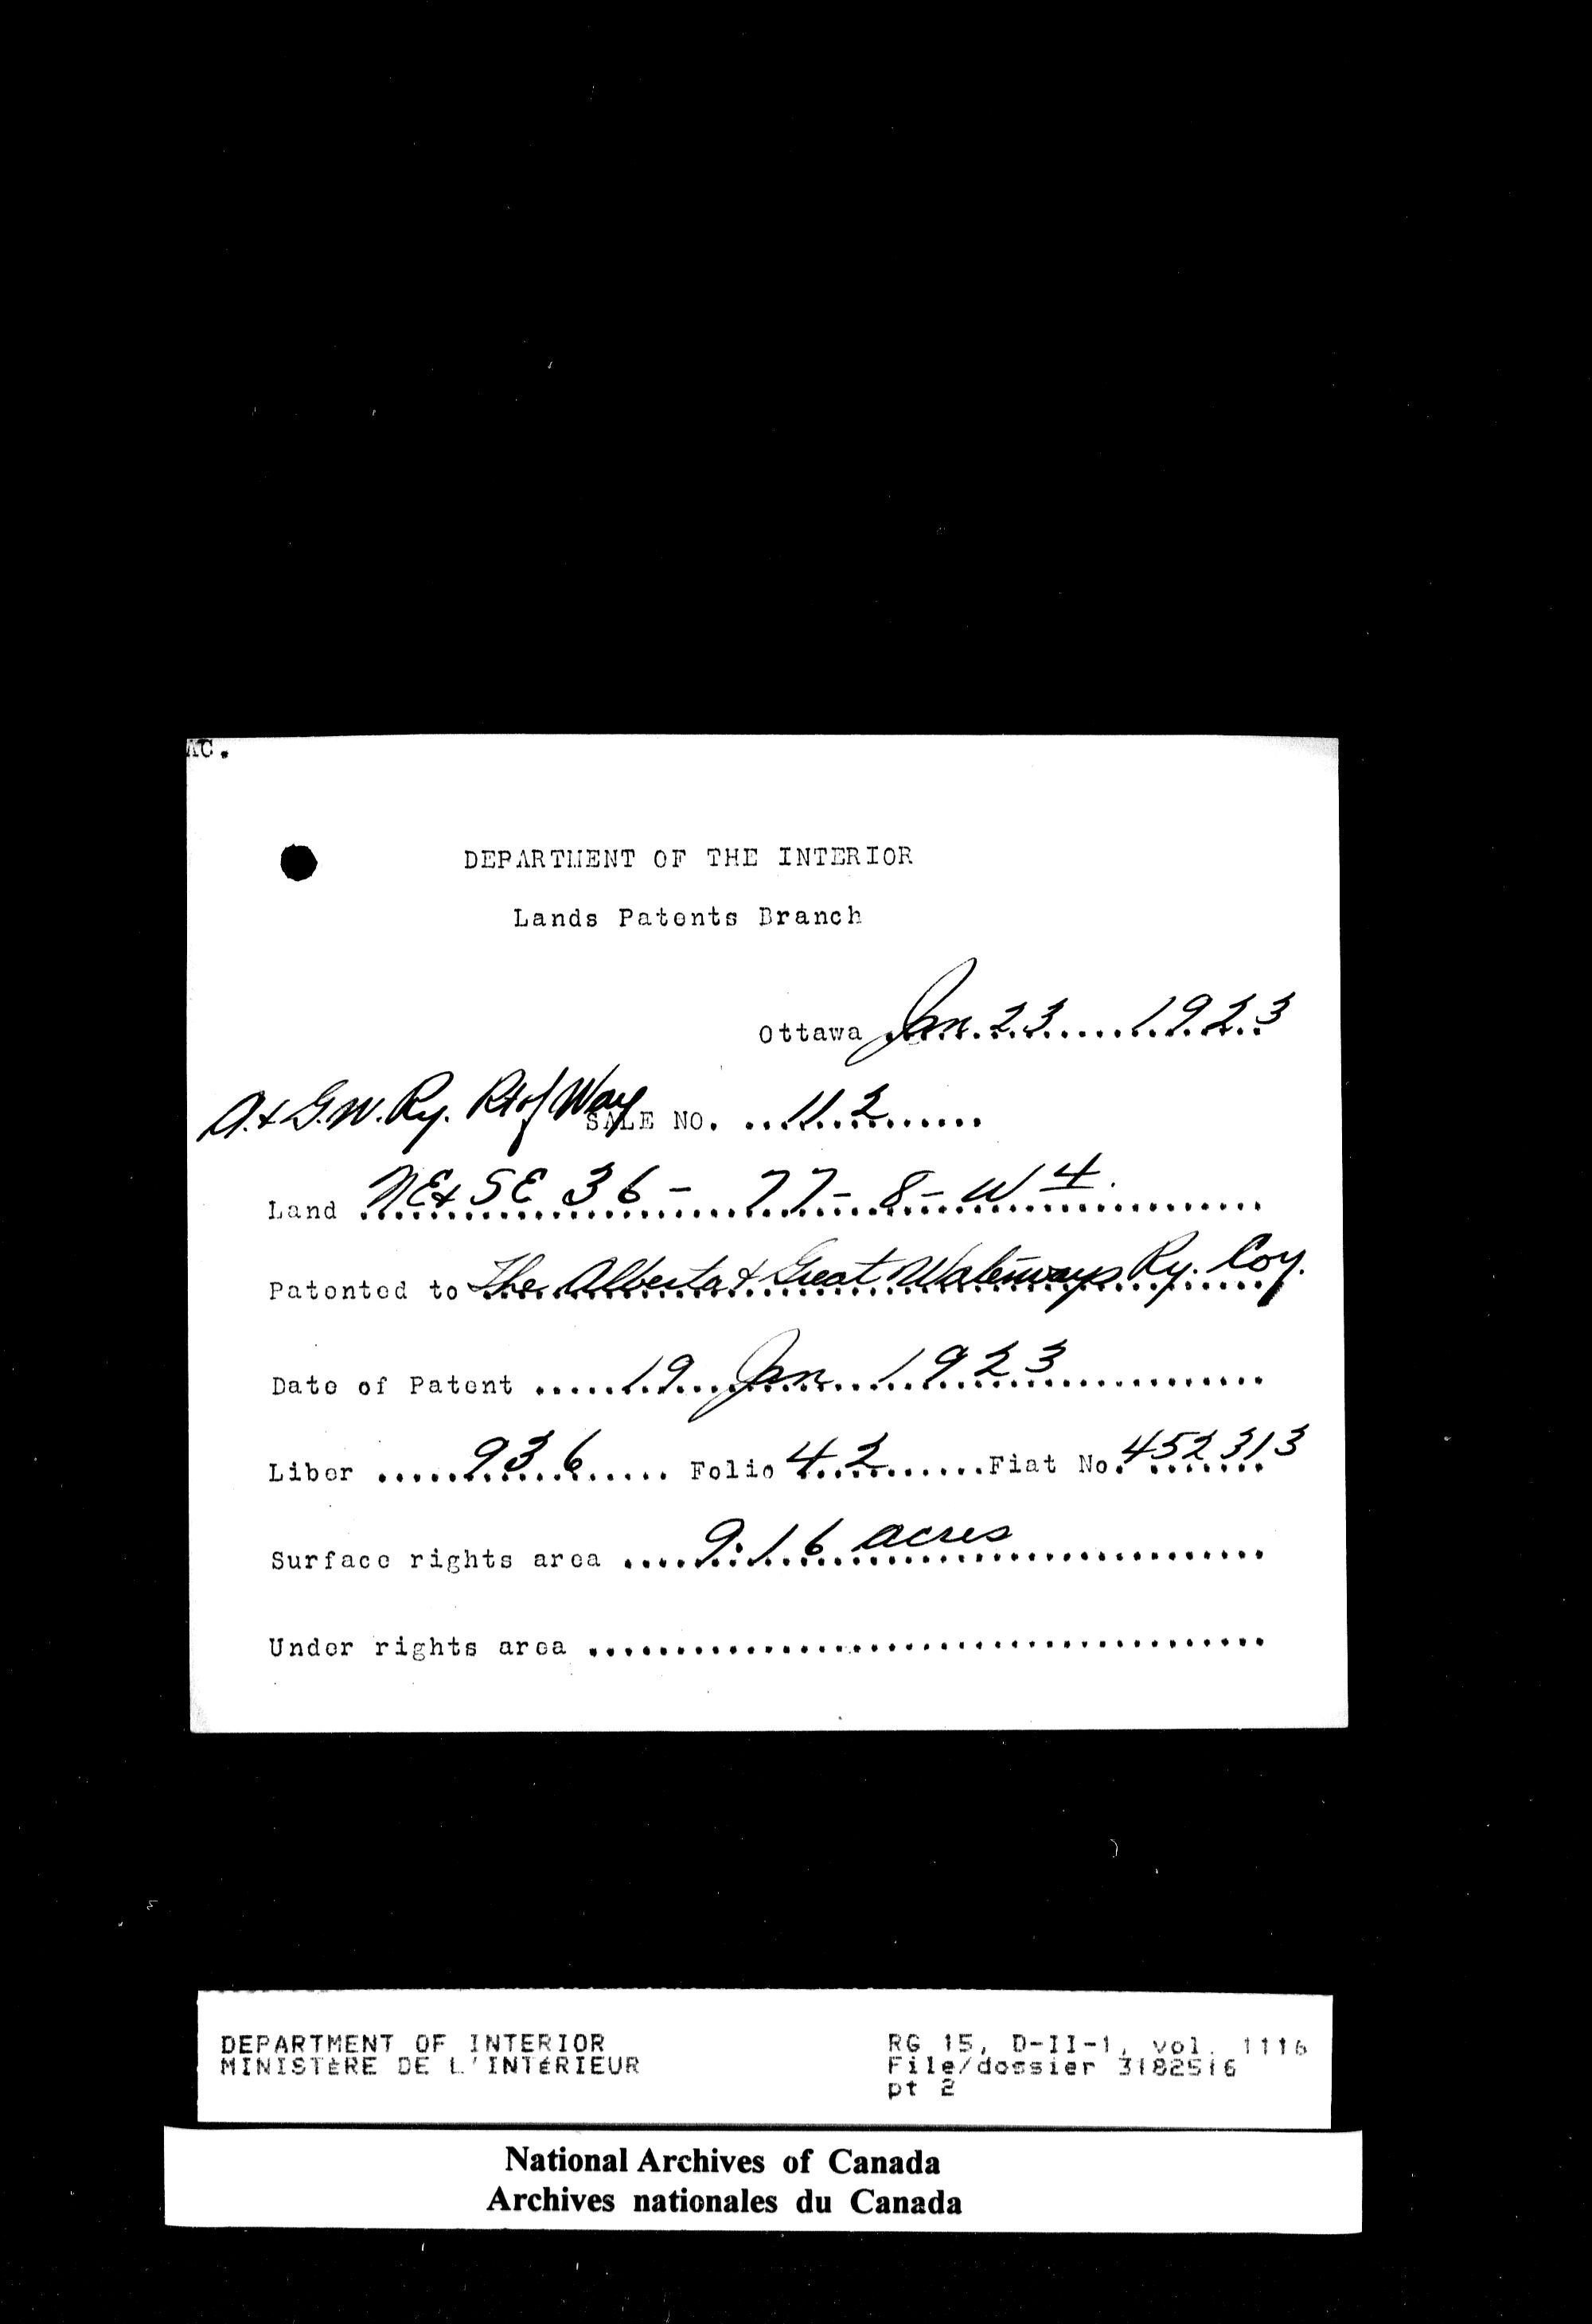 AC.
DEPARTMENT OF THE INTERIOR
Lands Patents Branch
Ottawa Jan 23 1923
A. & G.W. Ry. Rt of Way SALE NO. 112
Land NE & SE 36 - 77 - 8 - W 4.
Patented to The Alberta & Great Waterways Ry. Coy.
Date of Patent 19 Jan 1923
Liber 936 Folio 42 Fiat No. 452313
Surface rights area 9.16 acres
Under rights area
DEPARTMENT OF INTERIOR
MINISTÈRE DE L'INTÉRIEUR
RG 15, D-II-1, vol. 1116
File/dossier 3182516
pt 2
National Archives of Canada
Archives nationales du Canada